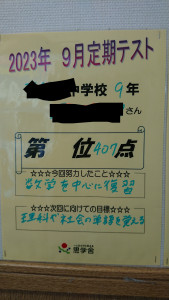 2023年 9月定期テスト
中学校 9年
さん
第 位 407点
☆☆☆今回努力したこと☆☆☆
数学を中心に復習
☆☆☆次回に向けての目標☆☆☆
理科や社会の単語を覚える
思学舎